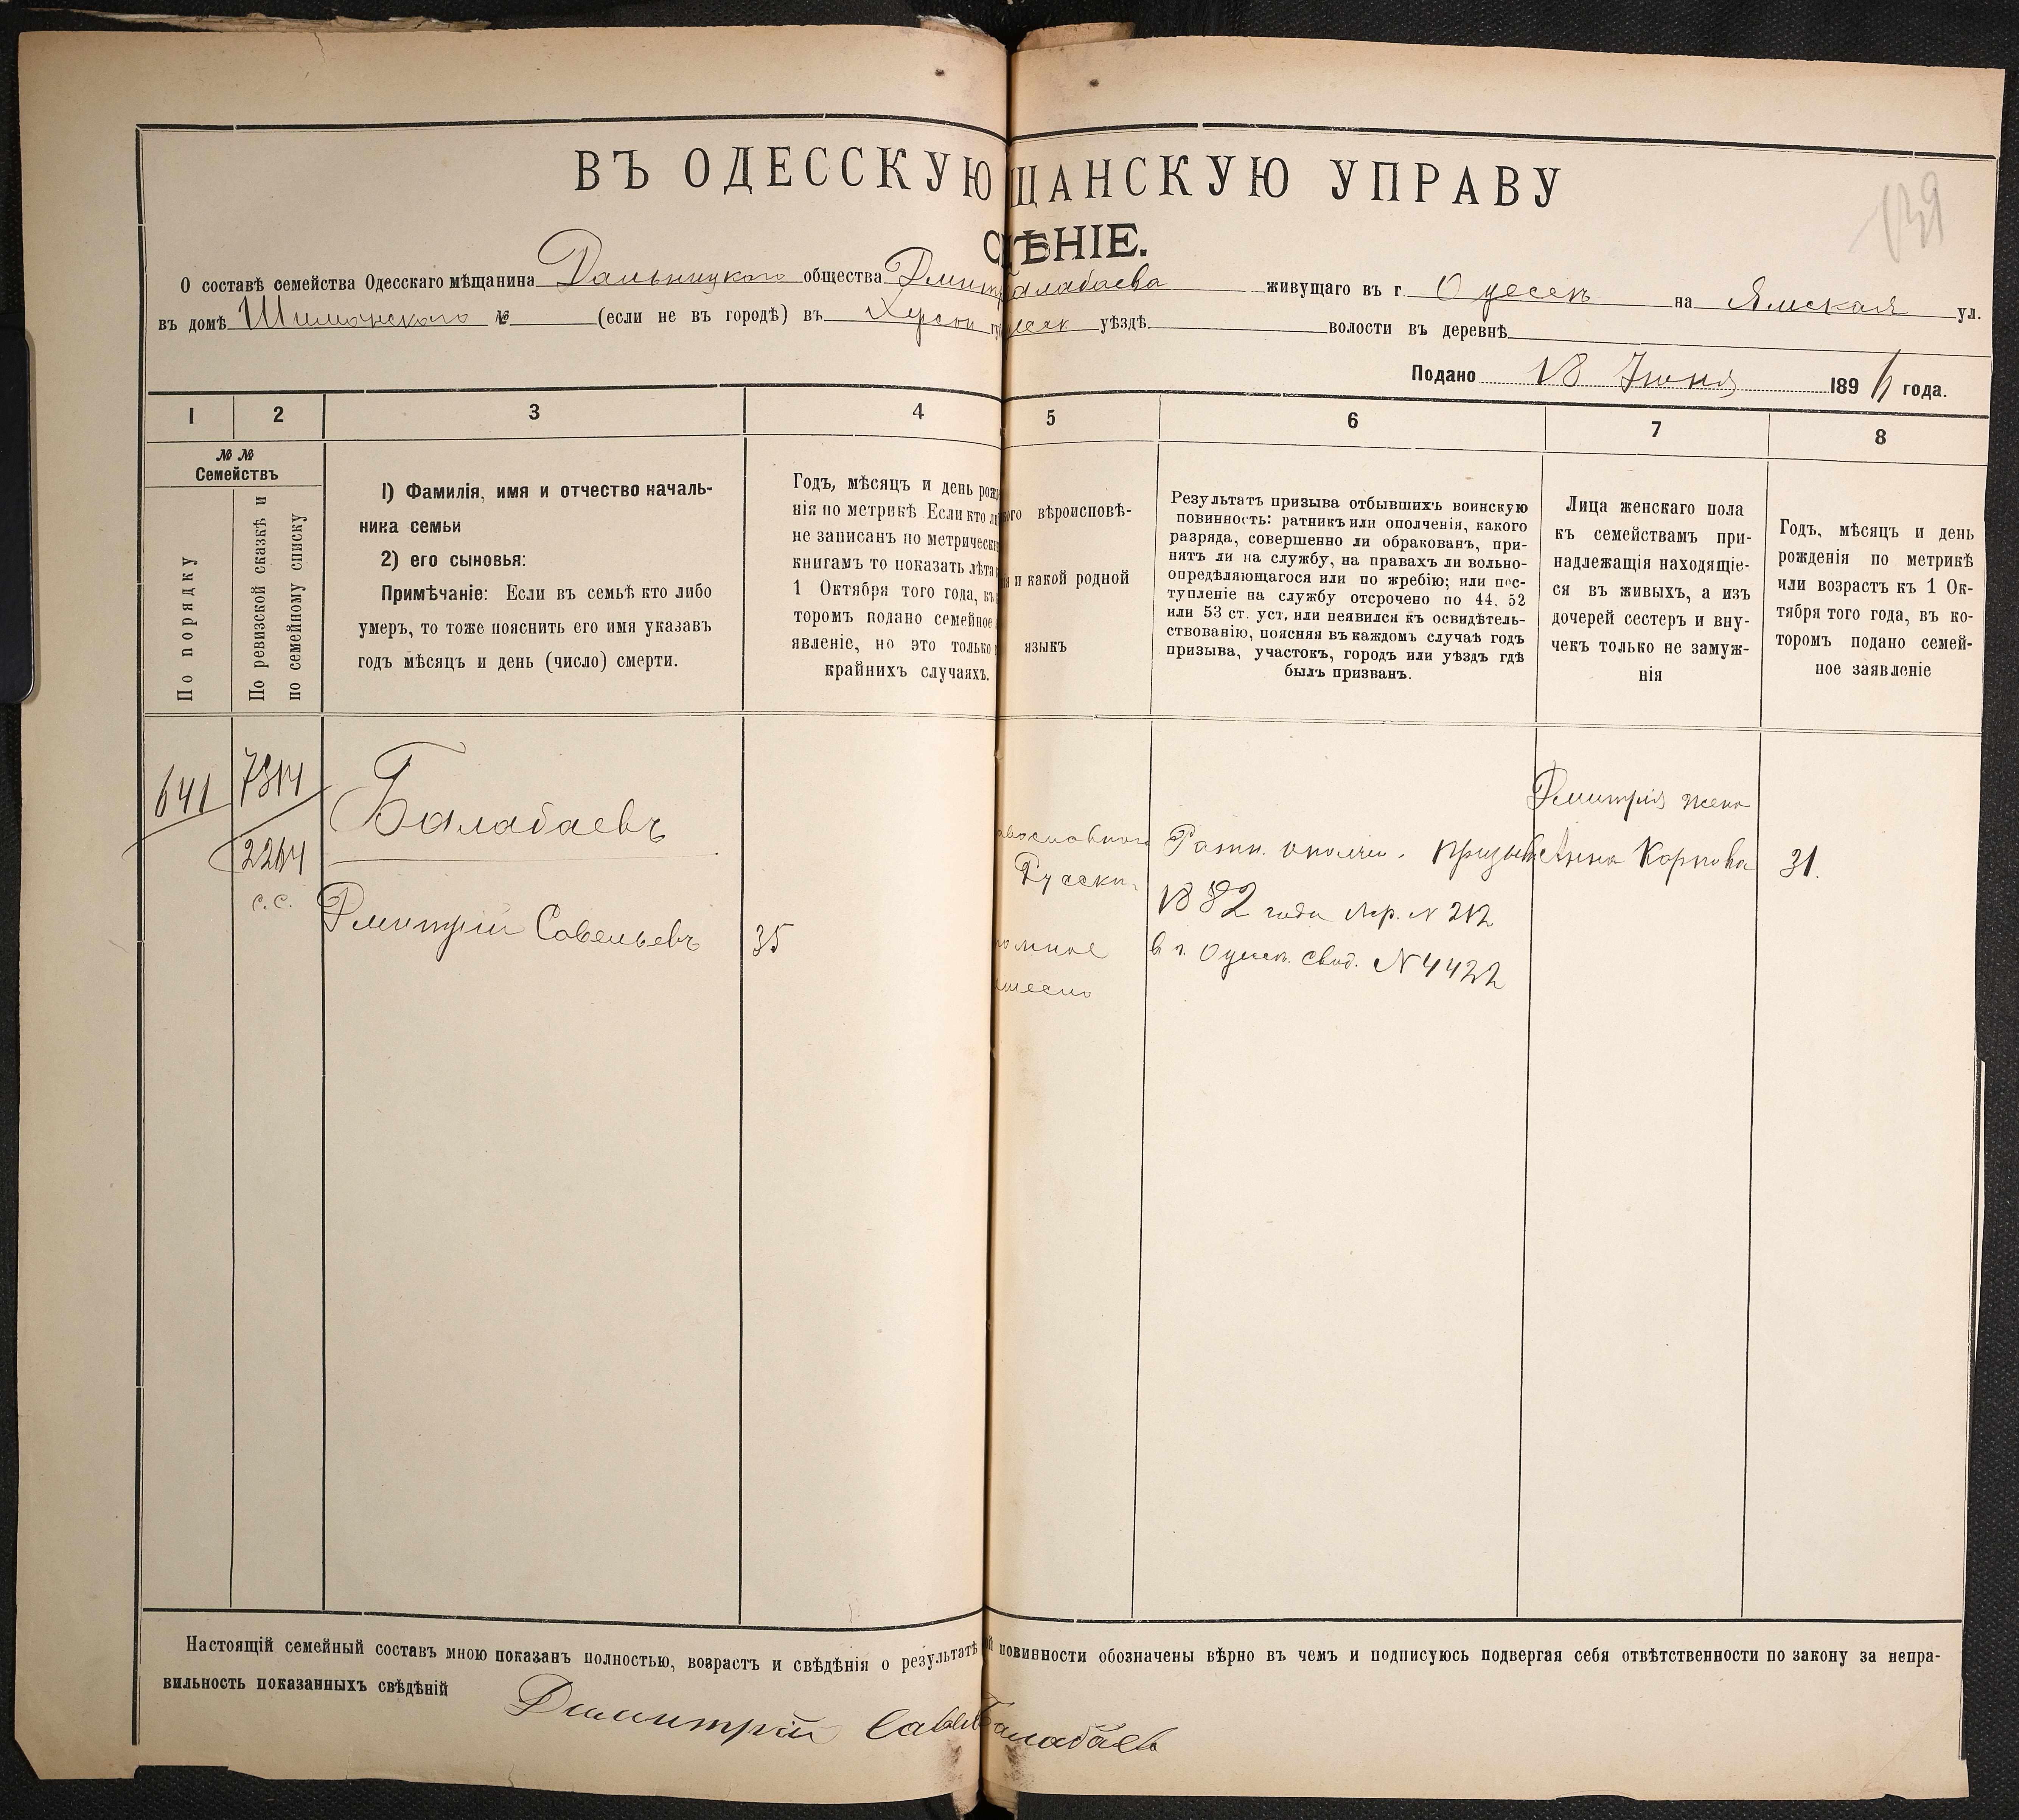 139
ВЪ ОДЕССКУЮ ЩАНСКУЮ УПРАВУ
ДѢНІЕ.
О составѣ семейства Одесскаго мѣщанина Дальницкого общества Дмит Балабаева живущаго въ г. Одессѣ на Ямская ул.
въ домѣ Шиманского № (если не въ городѣ) въ Херсон гу уѣздѣ волости въ деревнѣ
Подано 18 Іюня 1896 года.
1 2 3 4 5 6 7 8
№ №
Семействъ
По порядку
По ревизской сказкѣ и
по семейному списку
1) Фамилія, имя и отчество началь-
ника семьи
2) его сыновья:
Примѣчаніе: Если въ семьѣ кто либо
умеръ, то тоже пояснить его имя указавъ
годъ мѣсяцъ и день (число) смерти.
Годъ, мѣсяцъ и день рож
нія по метрикѣ Если кто ли
не записанъ по метрическ
книгамъ то показать лѣта
1 Октября того года, въ
торомъ подано семейное
явленіе, но это только
крайнихъ случаяхъ.
кого вѣроисповѣ-
ія и какой родной
языкъ
Результатъ призыва отбывшихъ воинскую
повинность: ратникъ или ополченія, какого
разряда, совершенно ли обракованъ, при-
нятъ ли на службу, на правахъ ли вольно-
опредѣляющагося или по жребію; или пос-
тупленіе на службу отсрочено по 44. 52
или 53 ст. уст, или неявился къ освидѣтель-
ствованію, поясняя въ каждомъ случаѣ годъ
призыва, участокъ, городъ или уѣздъ гдѣ
былъ призванъ.
Лица женскаго пола
къ семействамъ при-
надлежащія находящіе-
ся въ живыхъ, а изъ
дочерей сестеръ и вну-
чекъ только не замуж-
нія
Годъ, мѣсяцъ и день
рожденія по метрикѣ
или возрастъ къ 1 Ок-
тября того года, въ ко-
торомъ подано семей-
ное заявленіе
641
7314
2264
с.с.
Балабаевъ
Дмитрій Савельевъ 35
авославного
Русски
Ратн. ополчен. призыв
1882 года жр. N 212
в г. Одессѣ. свид. N 4422
Дмитрія жена
Анна Карпова 31.
Настоящій семейный составъ мною показанъ полностью, возрастъ и свѣдѣнія о результатѣ й повинности обозначены вѣрно въ чемъ и подписуюсь подвергая себя отвѣтственности по закону за непра-
вильность показанныхъ свѣдѣній
Димитрій Савел Балабаев